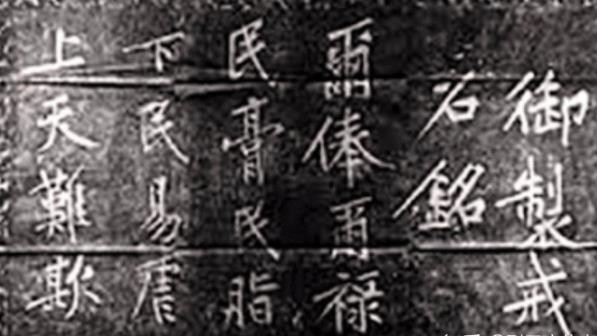 御製戒
石銘
爾俸爾禄
民膏民脂
下民易虐
上天難欺